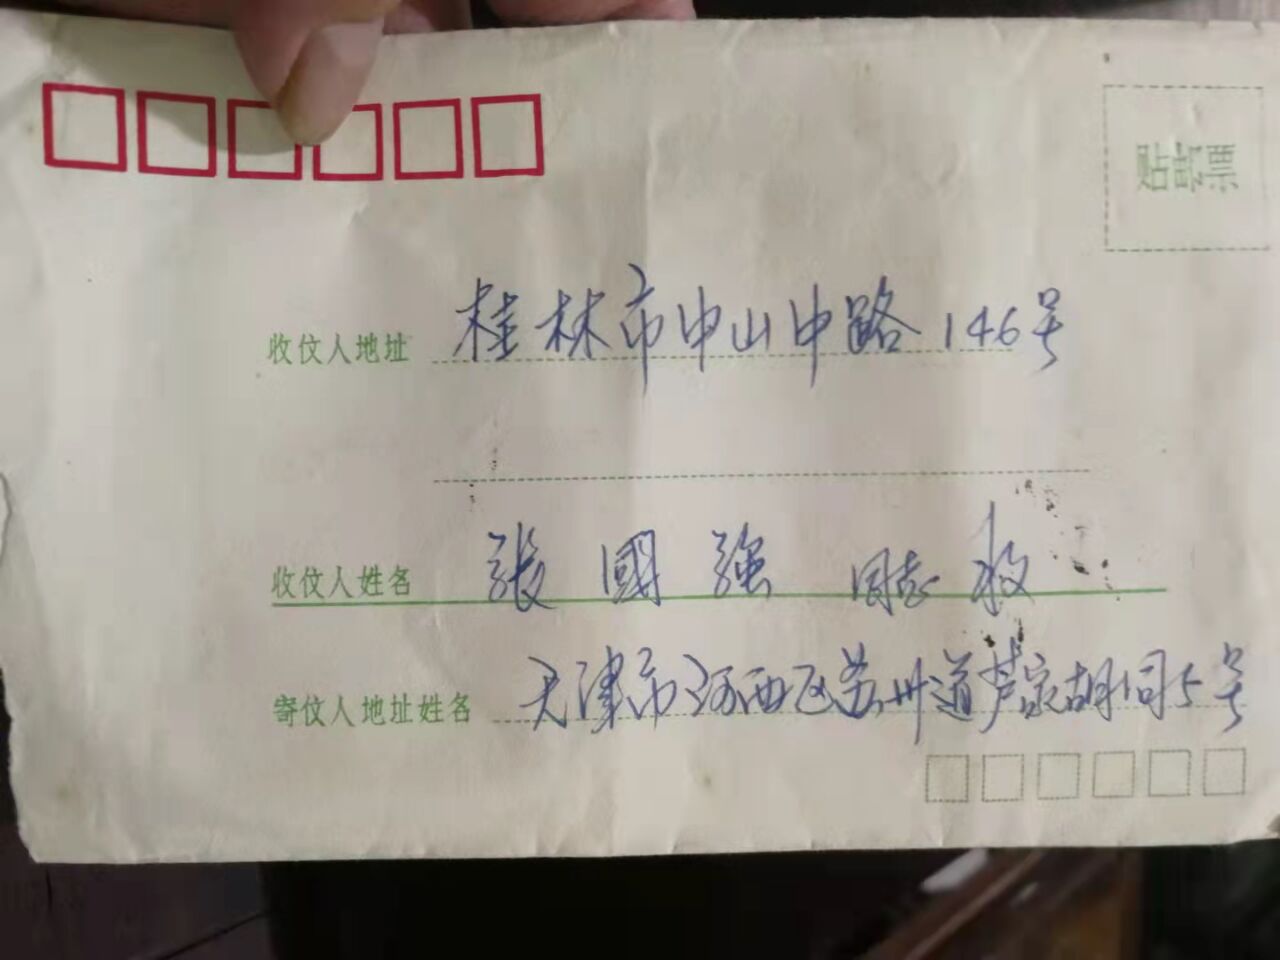 贴邮票
收信人地址 桂林市中山中路146号
收信人姓名 张國强 同志 收
寄信人地址姓名 天津市河西区苏州道芦家胡同5号